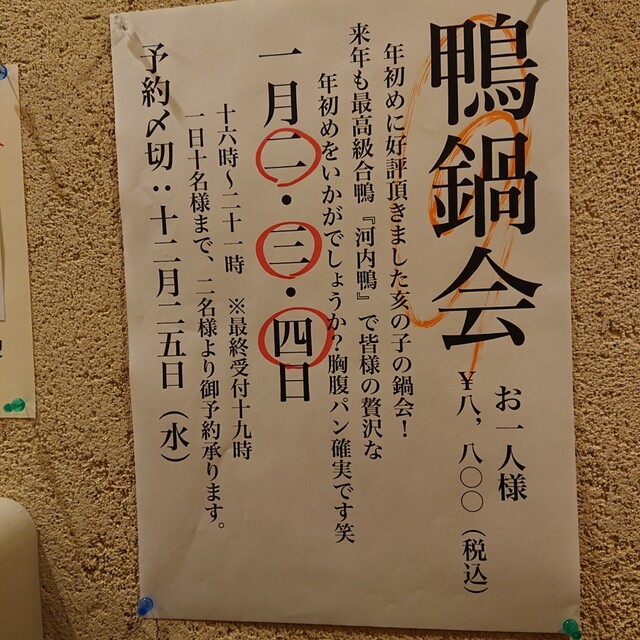 鴨鍋会
お一人様
¥八，八〇〇（税込）
年初めに好評頂きました亥の子の鍋会！
来年も最高級合鴨『河内鴨』で皆様の贅沢な
年初めをいかがでしょうか？胸腹パン確実です笑
一月二・三・四日
十六時〜二十一時　※最終受付十九時
一日十名様まで、二名様より御予約承ります。
予約〆切：十二月二五日（水）